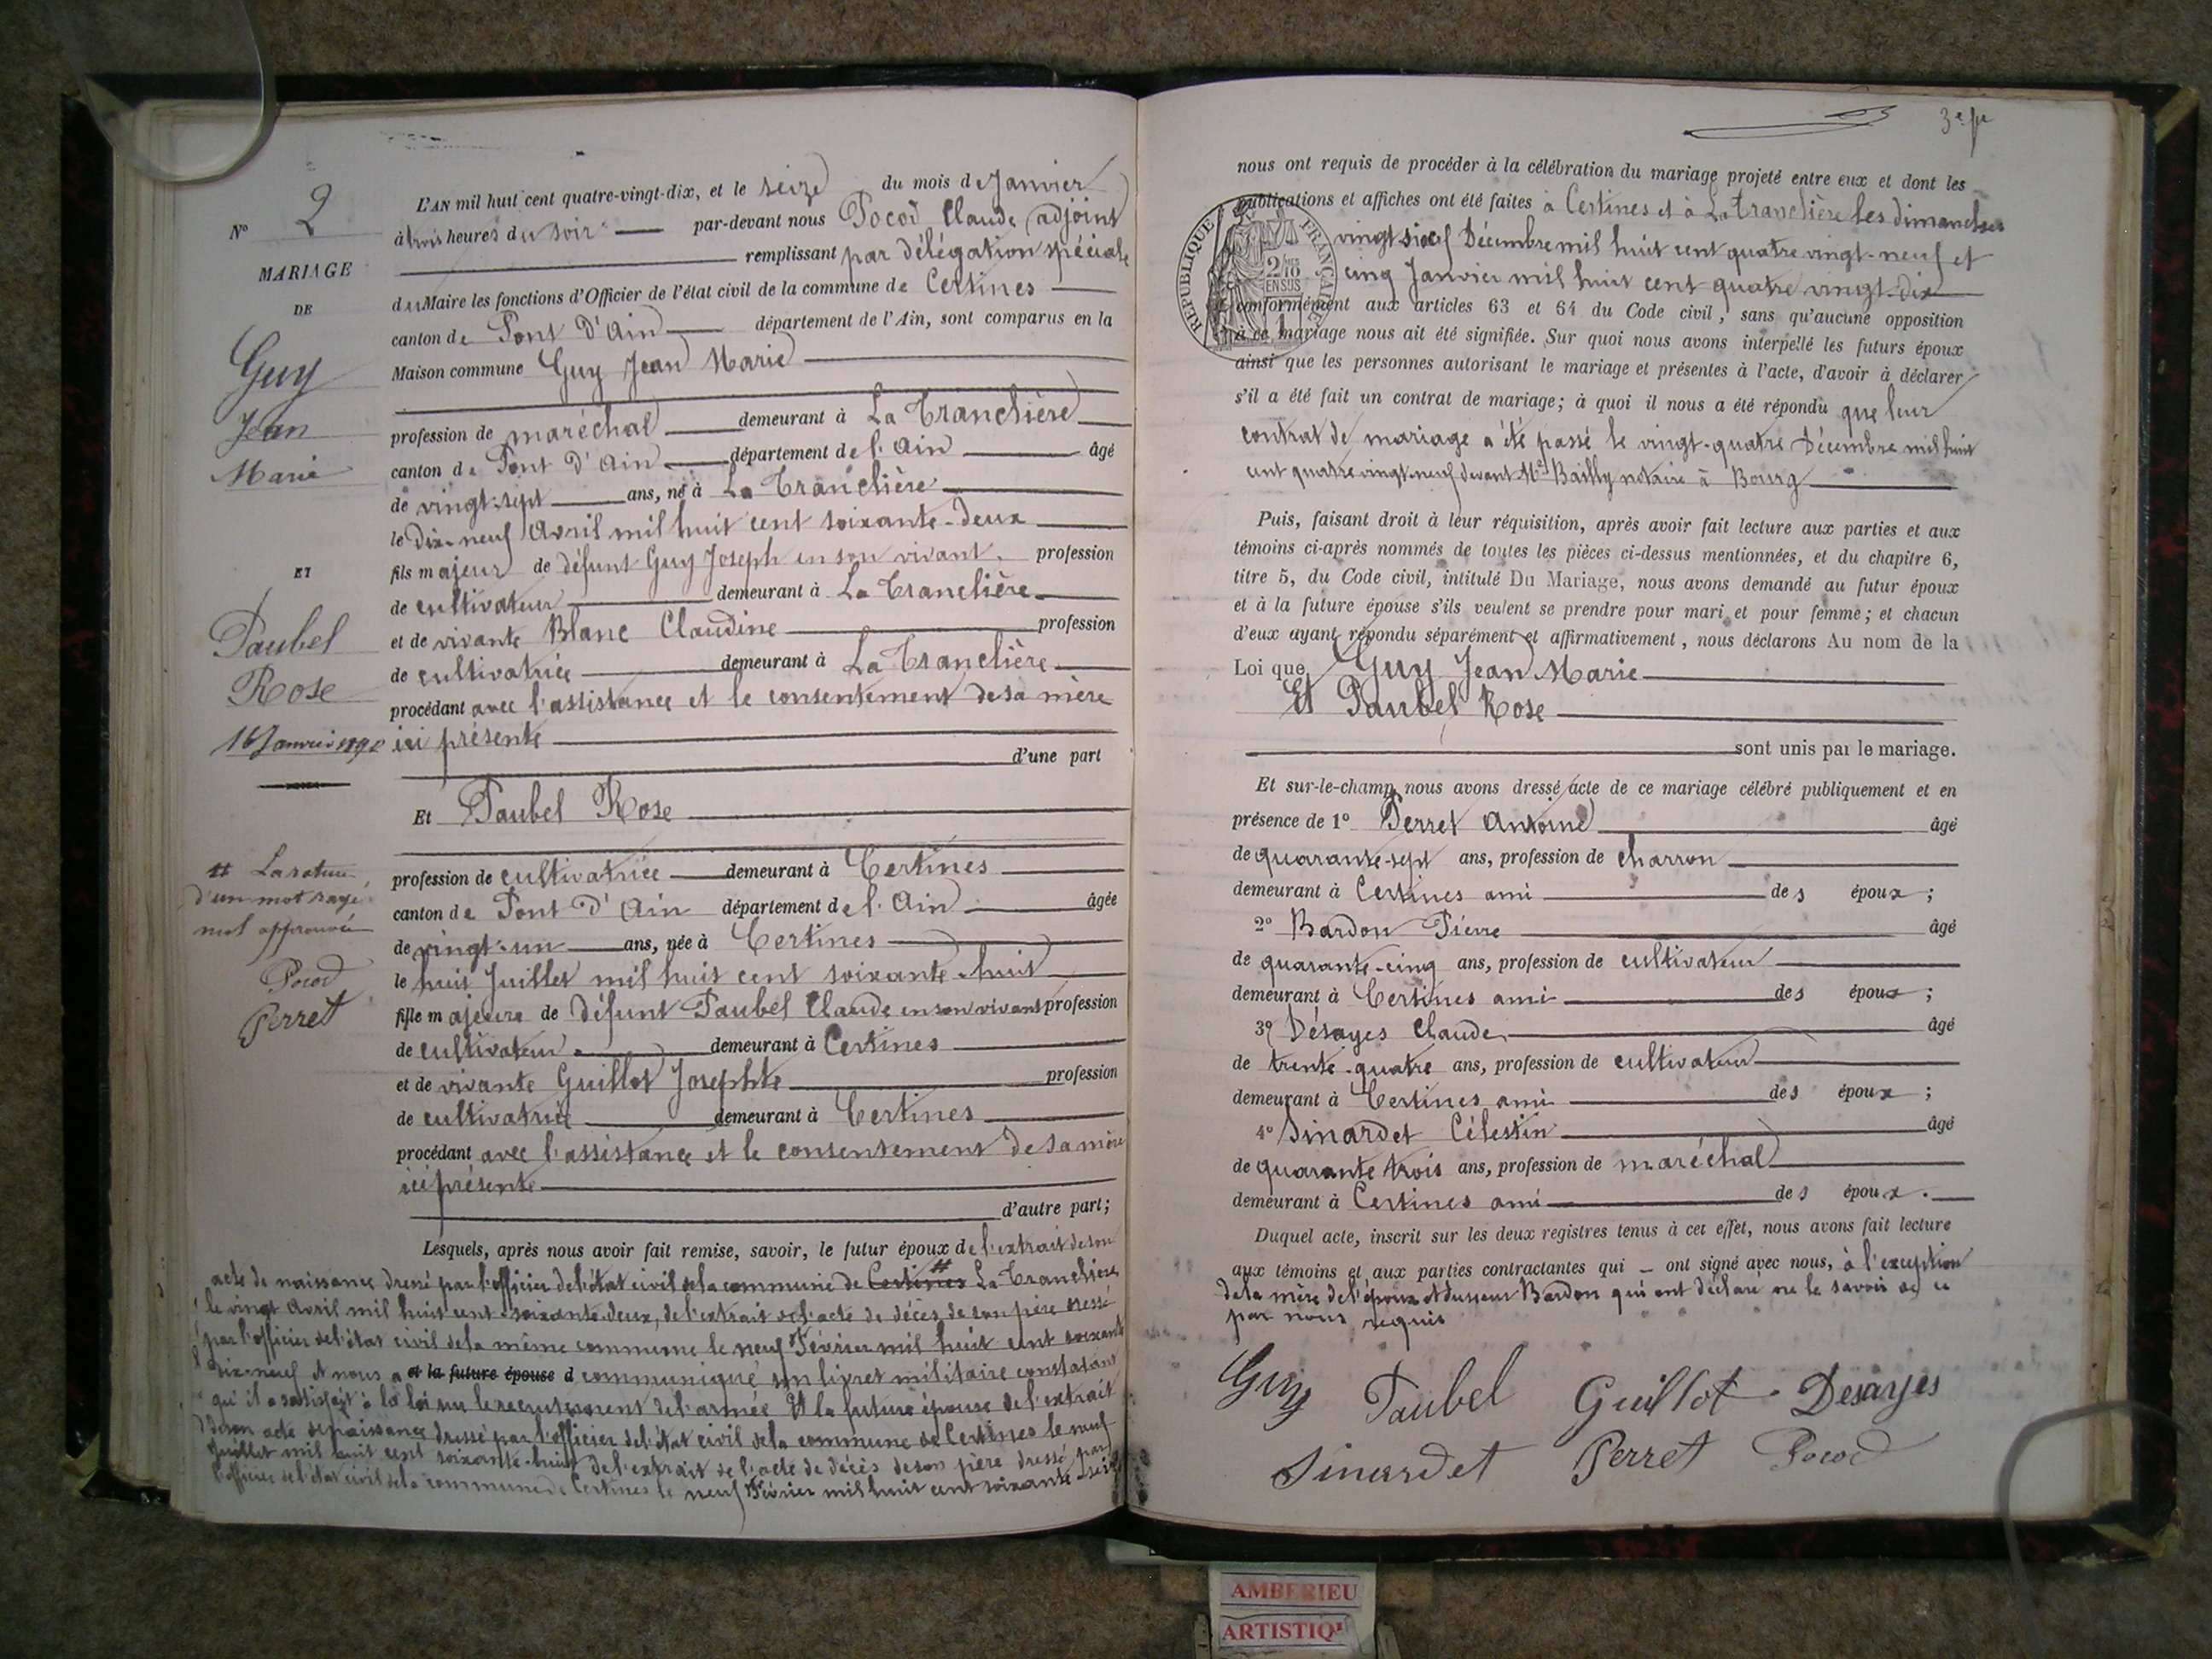 N° 2
MARIAGE
DE
Guy
Jean
Marie
ET
Paubel
Rose
16 Janvier 1890
# La rature
d'un mot rayé
mot approuvée
Pocod
Perret
L'AN mil huit cent quatre-vingt-dix, et le seize du mois de Janvier
à trois heures du soir par-devant nous Pocod Claude adjoint
remplissant par délégation spéciale
du Maire les fonctions d'Officier de l'état civil de la commune de Certines
canton de Pont D'Ain département de l'Ain, sont comparus en la
Maison commune Guy Jean Marie
profession de maréchal demeurant à La Tranclière
canton de Pont D'Ain département de l'Ain âgé
de vingt-sept ans, né à La Tranclière
le Dix-neuf Avril mil huit cent soixante-deux
fils majeur de défunt Guy Joseph en son vivant profession
de cultivateur demeurant à La Tranclière
et de vivante Blanc Claudine profession
de cultivatrice demeurant à La Tranclière
procédant avec l'assistance et le consentement de sa mère
ici présente
d'une part
Et Paubel Rose
profession de cultivatrice demeurant à Certines
canton de Pont D'Ain département de l'Ain âgée
de vingt-un ans, née à Certines
le huit Juillet mil huit cent soixante-huit
fille majeure de défunt Paubel Claude en son vivant profession
de cultivateur demeurant à Certines
et de vivante Guillot Josephte profession
de cultivatrice demeurant à Certines
procédant avec l'assistance et le consentement de sa mère
ici présente
d'autre part;
Lesquels, après nous avoir fait remise, savoir, le futur époux de l'extrait de son
acte de naissance dressé par l'officier de l'état civil de la commune de Certines # La Tranclière
le vingt Avril mil huit cent soixante-deux, de l'extrait de l'acte de décès de son père dressé
par l'officier de l'état civil de la même commune le neuf Février mil huit cent soixante
dix-neuf et nous a et la future épouse d communiqué son livret militaire constatant
qu'il a satisfait à la loi sur le recrutement de l'armée Et la future épouse de l'extrait
de son acte de naissance dressé par l'officier de l'état civil de la commune de Certines le neuf
Juillet mil huit cent soixante-huit de l'extrait de l'acte de décès de son père dressé par
l'officier de l'état civil de la commune de Certines le neuf Février mil huit cent soixante-seize
3e fe
nous ont requis de procéder à la célébration du mariage projeté entre eux et dont les
publications et affiches ont été faites à Certines et à La Tranclière les dimanches
vingt Décembre mil huit cent quatre vingt-neuf et
cinq Janvier mil huit cent quatre vingt-dix
RÉPUBLIQUE FRANÇAISE
2/10
EN SUS
conformément aux articles 63 et 64 du Code civil, sans qu'aucune opposition
à ce mariage nous ait été signifiée. Sur quoi nous avons interpellé les futurs époux
ainsi que les personnes autorisant le mariage et présentes à l'acte, d'avoir à déclarer
s'il a été fait un contrat de mariage; à quoi il nous a été répondu que leur
contrat de mariage a été passé le vingt-quatre Décembre mil huit
cent quatre vingt-neuf devant Me Bailly notaire à Bourg
Puis, faisant droit à leur réquisition, après avoir fait lecture aux parties et aux
témoins ci-après nommés de toutes les pièces ci-dessus mentionnées, et du chapitre 6,
titre 5, du Code civil, intitulé Du Mariage, nous avons demandé au futur époux
et à la future épouse s'ils veulent se prendre pour mari et pour femme; et chacun
d'eux ayant répondu séparément et affirmativement, nous déclarons Au nom de la
Loi que Guy Jean Marie
Et Paubel Rose
sont unis par le mariage.
Et sur-le-champ nous avons dressé acte de ce mariage célébré publiquement et en
présence de 1° Perret Antoine âgé
de quarante-sept ans, profession de charron
demeurant à Certines ami des époux;
2° Bardon Pierre âgé
de quarante-cinq ans, profession de cultivateur
demeurant à Certines ami des époux;
3° Désayes Claude âgé
de trente-quatre ans, profession de cultivateur
demeurant à Certines ami des époux;
4° Sinardet Célestin âgé
de quarante trois ans, profession de maréchal
demeurant à Certines ami des époux.
Duquel acte, inscrit sur les deux registres tenus à cet effet, nous avons fait lecture
aux témoins et aux parties contractantes qui ont signé avec nous, à l'exception
de la mère de l'époux et du sieur Bardon qui ont déclaré ne le savoir de ce
par nous requis
Guy Paubel Guillot Desayes
Sinardet Perret Pocod
AMBERIEU
ARTISTIQ